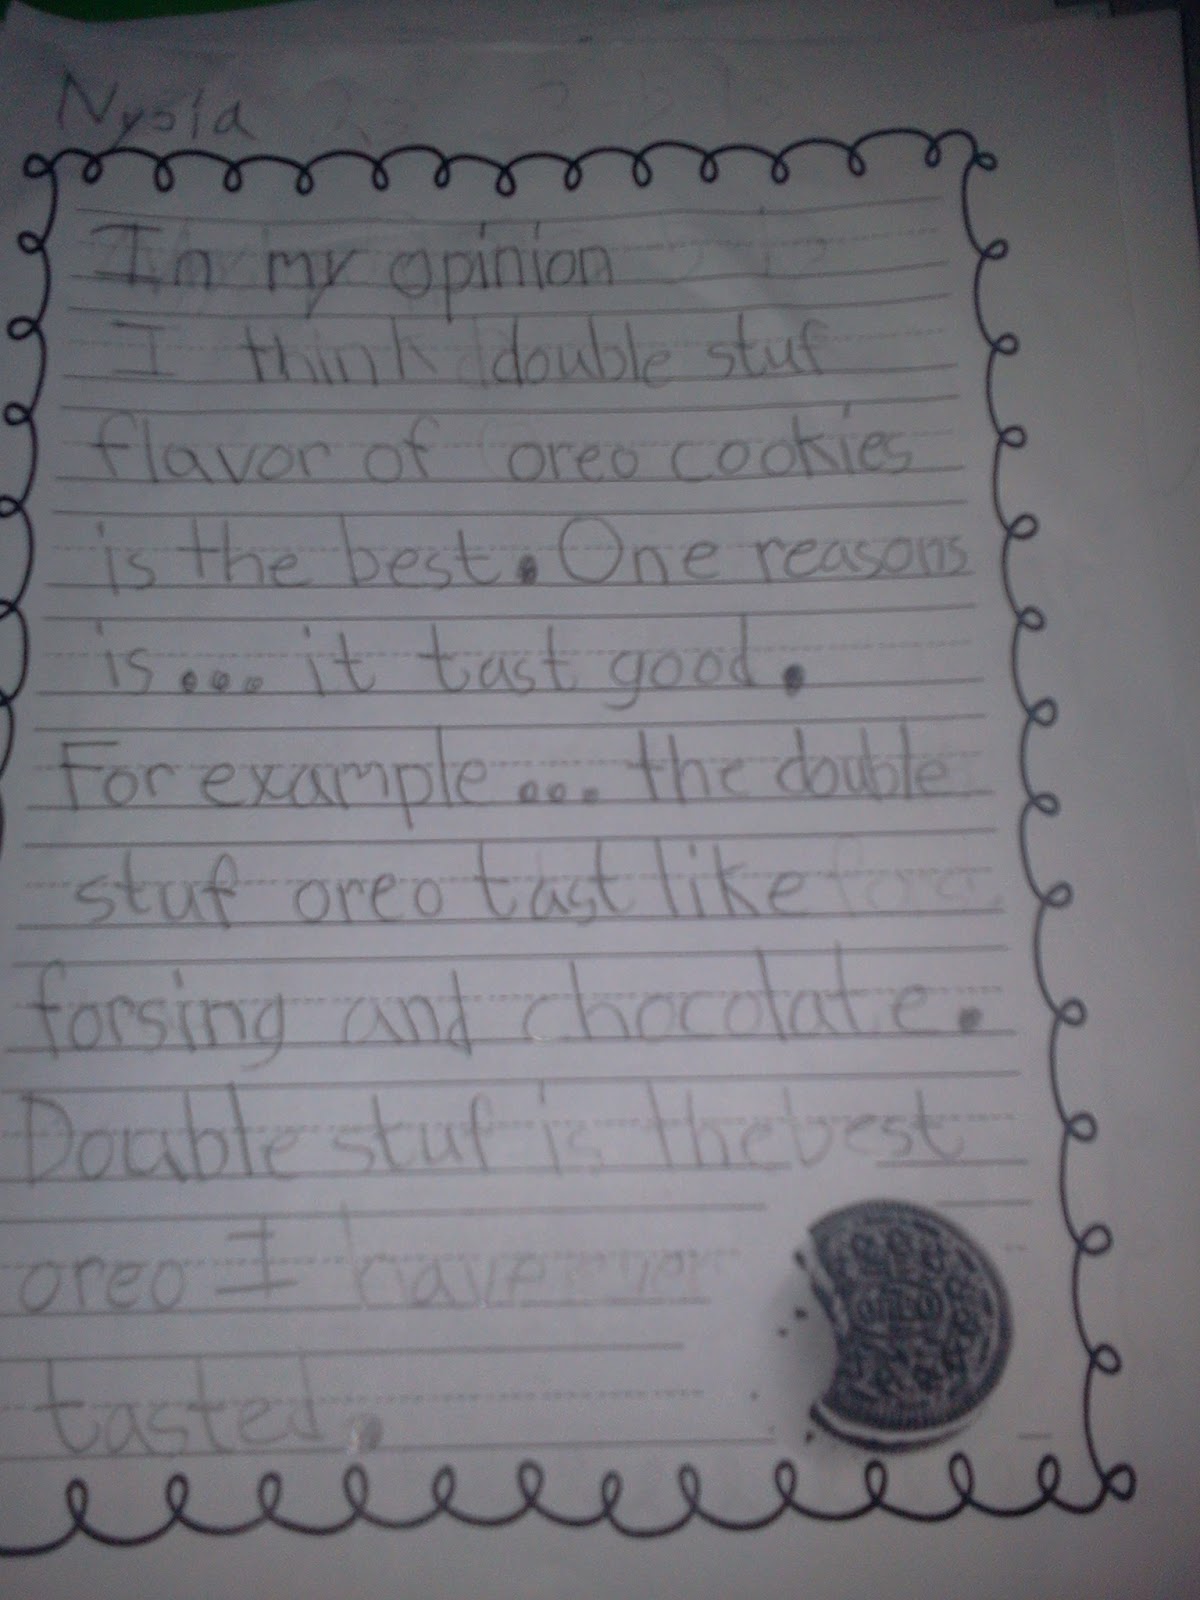 Nysia
In my opinion
I think double stuf
flavor of oreo cookies
is the best. One reasons
is... it tast good.
For example... the double
stuf oreo tast like
forsing and chocolate.
Double stuf is the best
oreo I have
tasted.
OREO